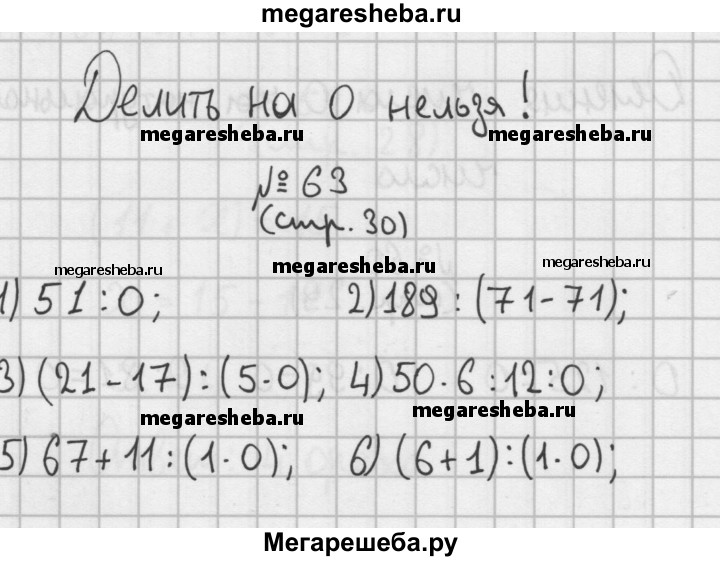 megaresheba.ru
Делить на 0 нельзя!
megaresheba.ru megaresheba.ru
№ 63
(стр. 30)
megaresheba.ru megaresheba.ru megaresheba.ru
1) 51:0; 2) 189:(71-71);
3) (21-17):(5·0); 4) 50·6:12:0;
megaresheba.ru megaresheba.ru
5) 67+11:(1·0); 6) (6+1):(1·0);
Мегарешеба.ру